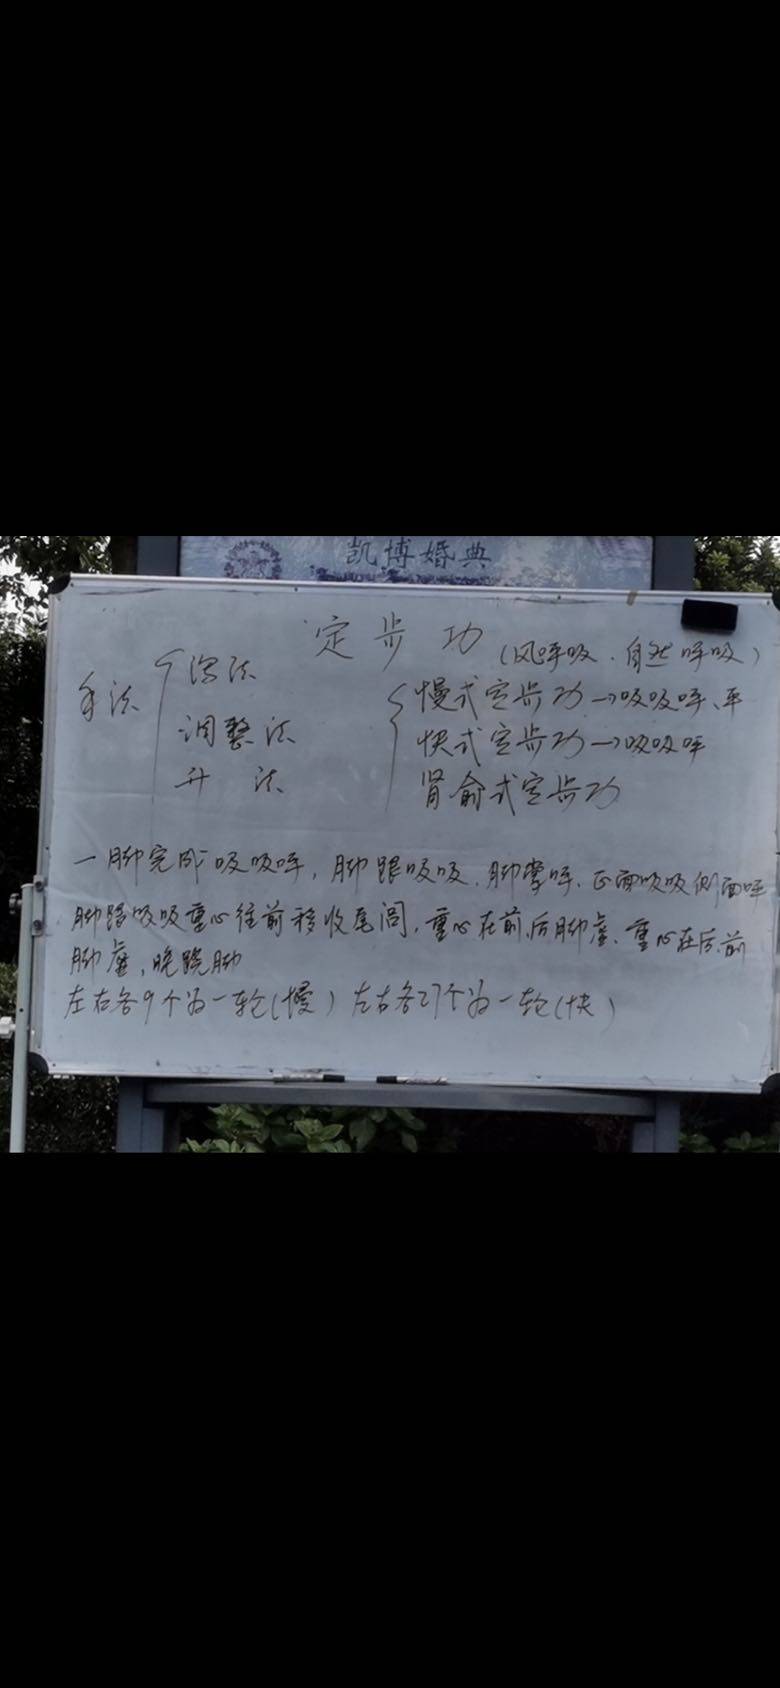 凯博婚典
定步功(风呼吸.自然呼吸)
手法
泻法
调整法
升法
慢式定步功→吸吸呼、平
快式定步功→吸吸呼
肾俞式定步功
一脚完成吸吸呼,脚跟吸吸.脚掌呼.正面吸吸侧面呼
脚跟吸吸重心往前移收尾闾,重心在前,后脚虚、重心在后,前
脚虚,晚跷脚
左右各9个为一轮(慢)左右各27个为一轮(快)